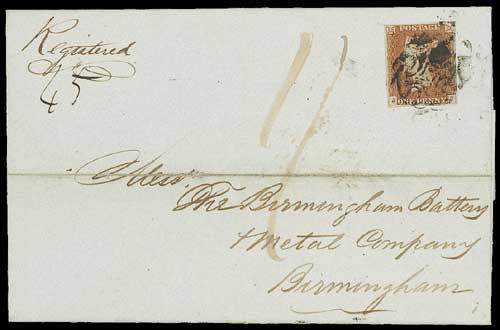 Registered
45
POSTAGE
ONE PENNY
Messrs
The Birmingham Battery
& Metal Company
Birmingham